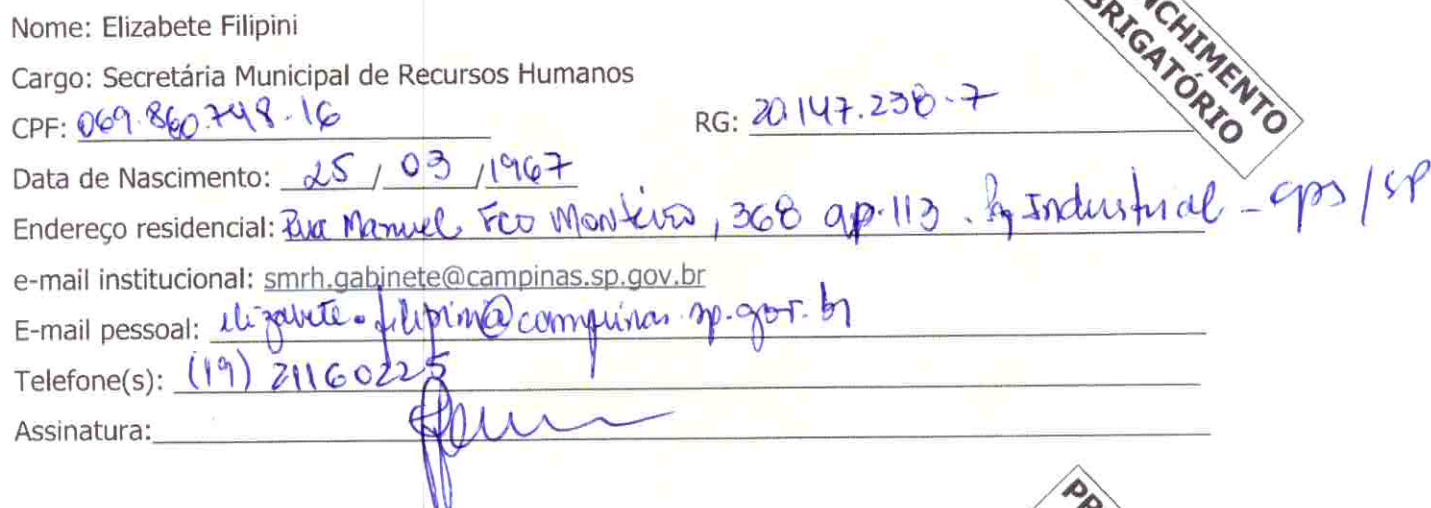 NCHIMENTO
BRIGATÓRIO
Nome: Elizabete Filipini
Cargo: Secretária Municipal de Recursos Humanos
CPF: 069.860.748-16 RG: 20.147.238-7
Data de Nascimento: 25 / 03 / 1967
Endereço residencial: Rua Manuel Fco Monteiro, 368 ap. 113. Pq Industrial - cps / SP
e-mail institucional: smrh.gabinete@campinas.sp.gov.br
E-mail pessoal: elizabete.filipini@campinas.sp.gov.br
Telefone(s): (19) 21160225
Assinatura:
PR